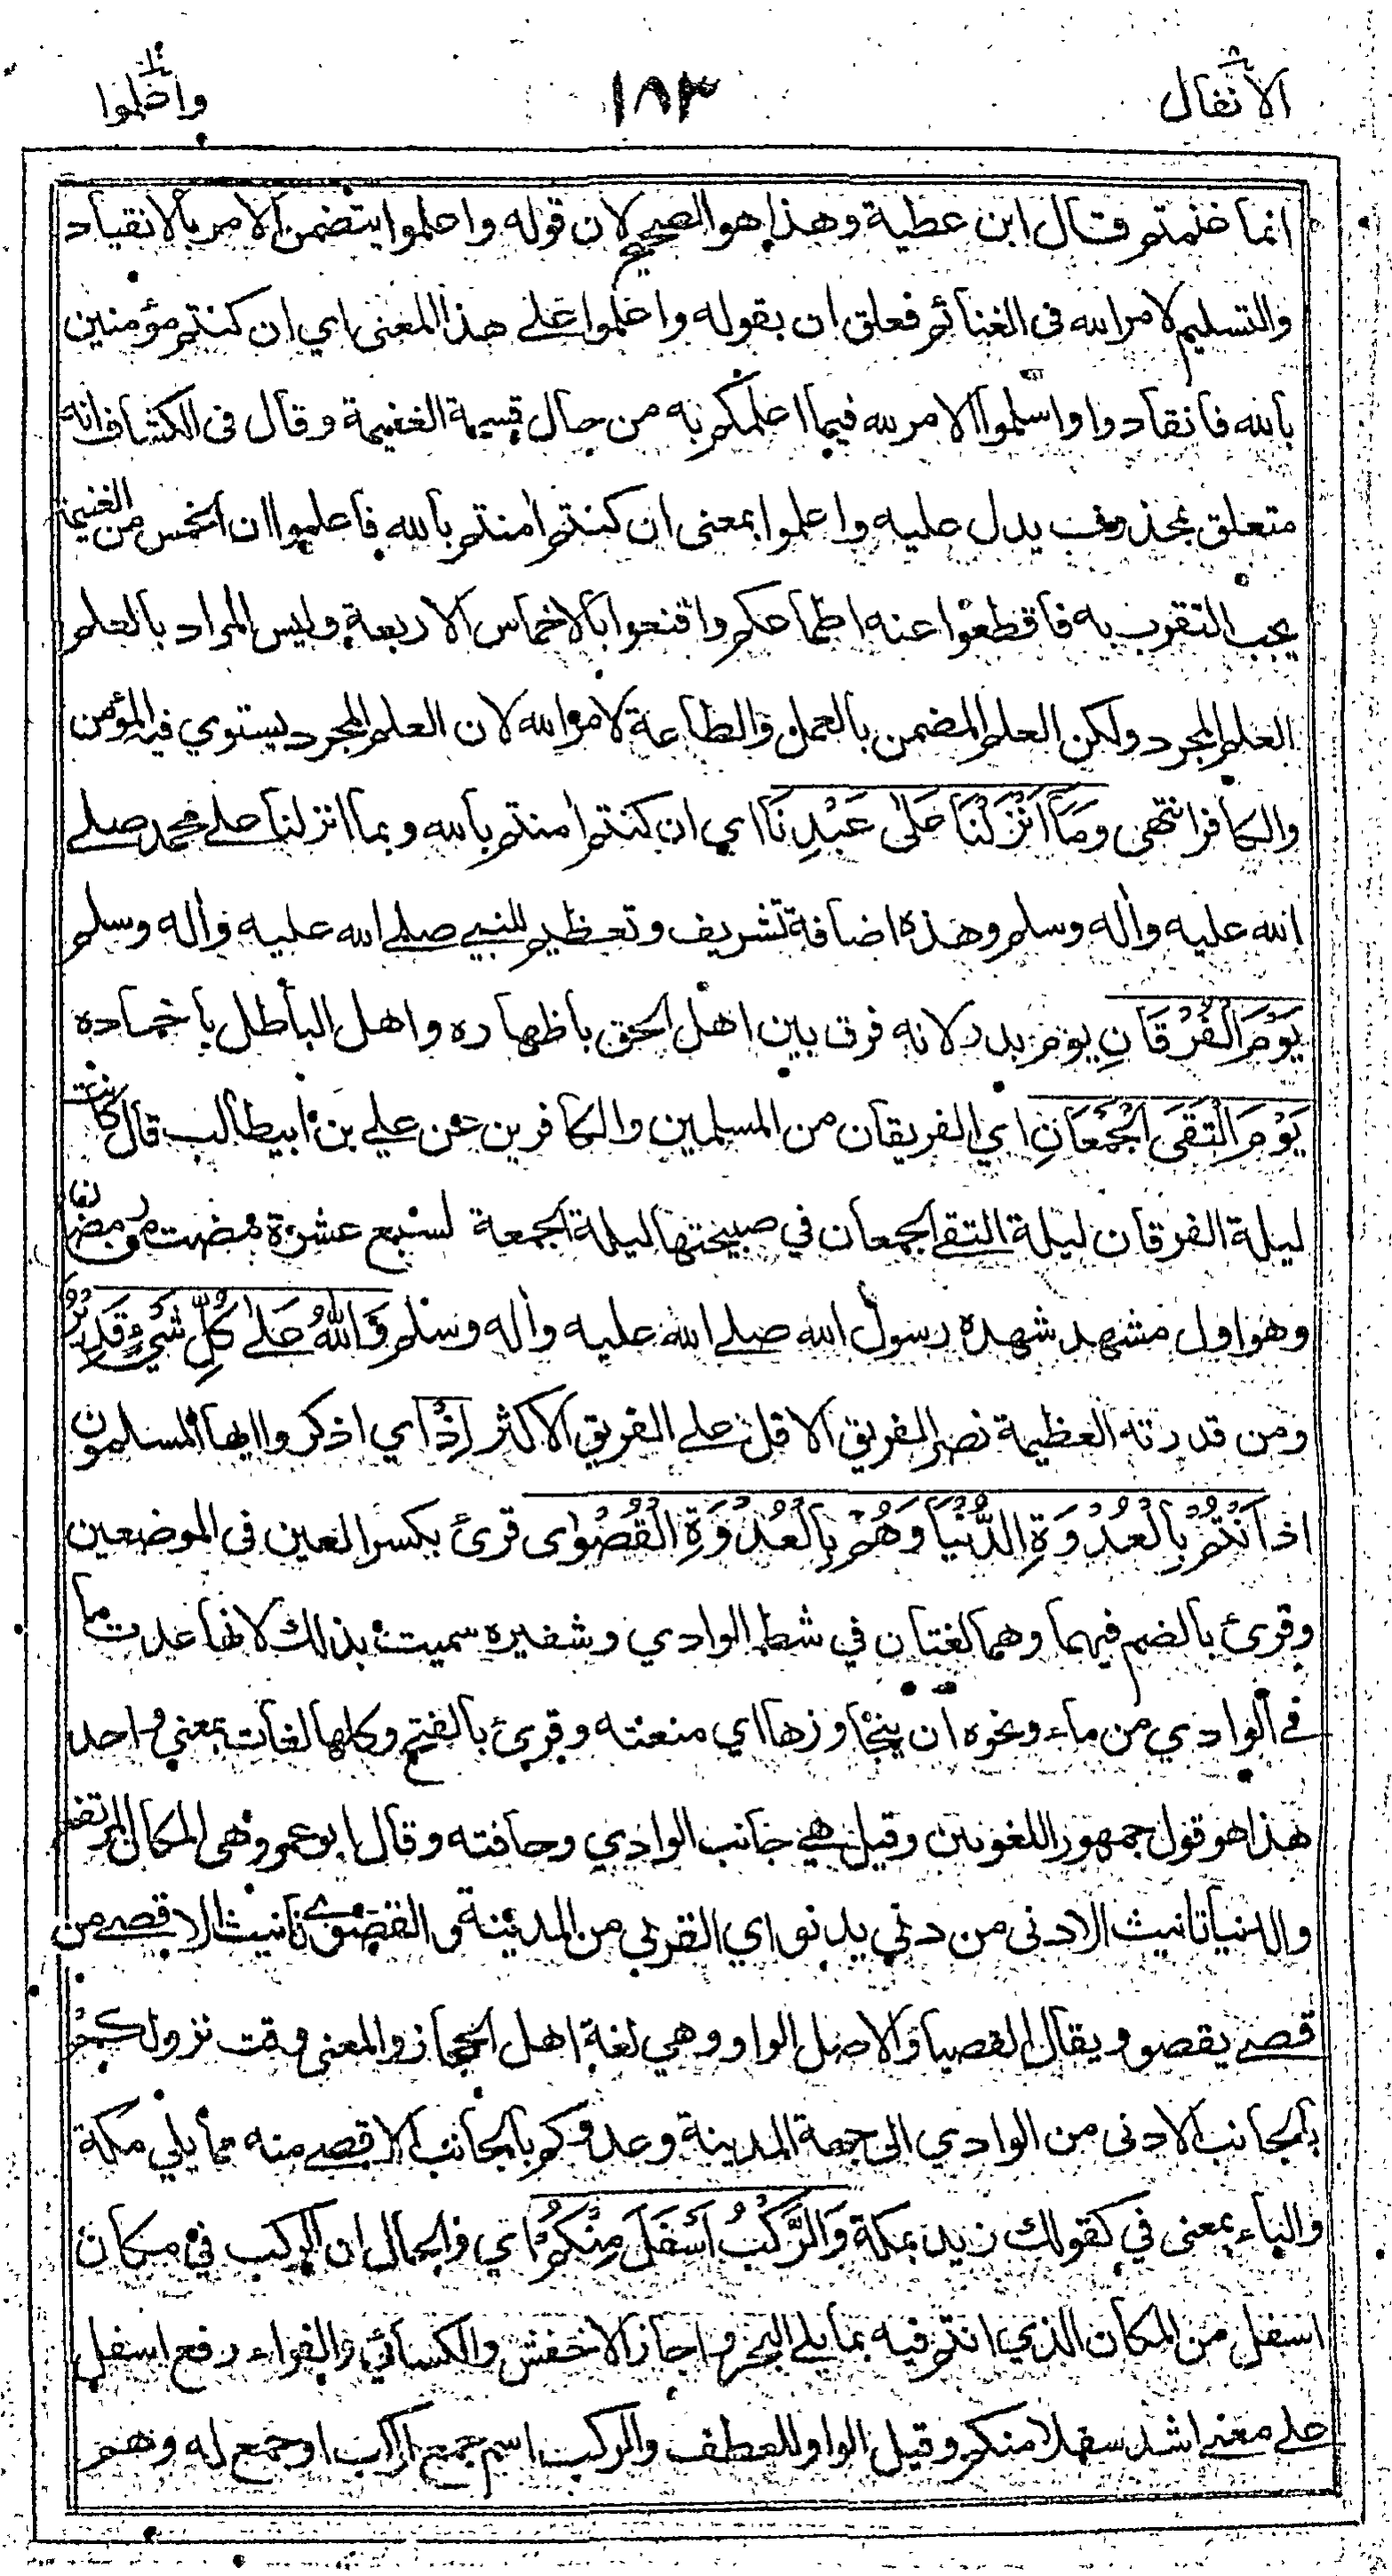 الانفال ١٨٣ واعلموا
انما غنمتم قال ابن عطية وهذا هو الصحيح لان قوله واعلموا يتضمن الامر بالانقياد
والتسليم لامر الله فى الغنائم فعلق ان بقوله واعلموا على هذا المعنى اي ان كنتم مؤمنين
بالله فانقادوا واسلموا الامر لله فيما اعلمكم به من حال قسمة الغنيمة وقال فى الكشاف انه
متعلق بمحذوف يدل عليه واعلموا بمعنى ان كنتم اٰمنتم بالله فاعلموا ان الخمس من الغنيمة
يجب التقرب به فاقطعوا عنه اطماعكم واقنعوا بالاخماس الاربعة وليس المراد بالعلم
العلم المجرد ولكن العلم المضمن بالعمل والطاعة لامر الله لان العلم المجرد يستوي فيه المؤمن
والكافر انتهى وَمَآ اَنْزَلْنَا عَلٰى عَبْدِنَا اي ان كنتم اٰمنتم بالله وبما انزلنا على محمد صلى
الله عليه واٰله وسلم وهذه اضافة تشريف وتعظيم للنبي صلى الله عليه واٰله وسلم
يَوْمَ الْفُرْقَانِ يوم بدر لانه فرق بين اهل الحق باظهاره واهل الباطل باخماده
يَوْمَ الْتَقَى الْجَمْعَانِ اي الفريقان من المسلمين والكافرين عن علي بن ابيطالب قال كانت
ليلة الفرقان ليلة التقى الجمعان في صبيحتها ليلة الجمعة لسبع عشرة مضت من رمضان
وهو اول مشهد شهده رسول الله صلى الله عليه واٰله وسلم وَاللّٰهُ عَلٰى كُلِّ شَيْءٍ قَدِيْرٌ
ومن قدرته العظيمة نصر الفريق الاقل على الفريق الاكثر اِذْ اي اذكروا ايها المسلمون
اذ اَنْتُمْ بِالْعُدْوَةِ الدُّنْيَا وَهُمْ بِالْعُدْوَةِ الْقُصْوٰى قرئ بكسر العين فى الموضعين
وقرئ بالضم فيهما وهما لغتان في شط الوادي وشفيره سميت بذلك لانها عدت ما
في الوادي من ماء ونحوه ان يتجاوزها اي منعته وقرئ بالفتح وكلها لغات بمعنى واحد
هذا هو قول جمهور اللغويين وقيل هي جانب الوادي وحافته وقال ابو عمرو هى المكان المرتفع
والدنيا تانيث الادنى من دنى يدنو اي القربى من المدينة والقصوى تانيث الاقصى من
قصى يقصو ويقال القصيا والاصل الواو وهي لغة اهل الحجاز والمعنى وقت نزولكم
بالجانب الادنى من الوادي الى جهة المدينة وعدوكم بالجانب الاقصى منه مما يلي مكة
والباء بمعنى في كقولك زيد بمكة وَالرَّكْبُ اَسْفَلَ مِنْكُمْ اي والحال ان الركب في مكان
اسفل من المكان الذي انتم فيه مما يلي البحر واجاز الاخفش والكسائي والفراء رفع اسفل
على معنى اشد سفلا منكم وقيل الواو للعطف والركب اسم جمع لراكب او جمع له وهم